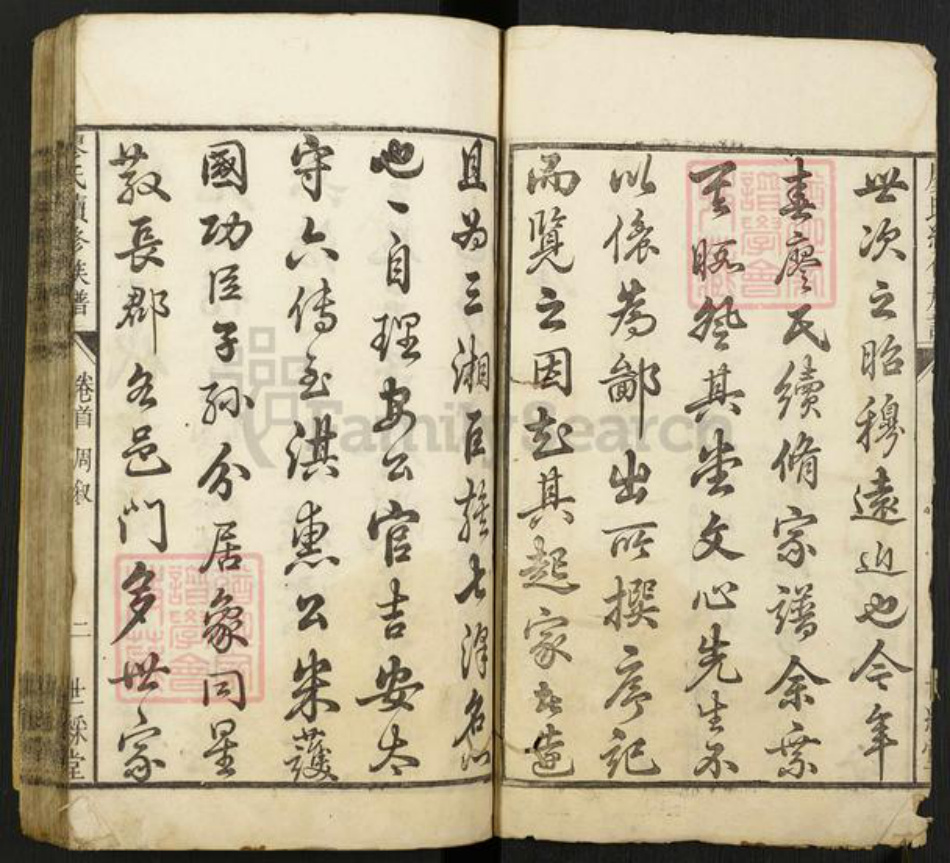 世次之昭穆遠近也今年
春廖氏續脩宗譜余業
其堂文心先生不
以傖為鄙出所撰序記
而覽之因起其起家者
且為三湘巨族七澤名
也一自理安公官吉安太
守六傳至淇惠公
國功臣子孫分居象同星
教長郡各邑門多世家
氏續修族譜
卷首
周敘
二
世綵堂
FamilySearch
譜學會
譜學會